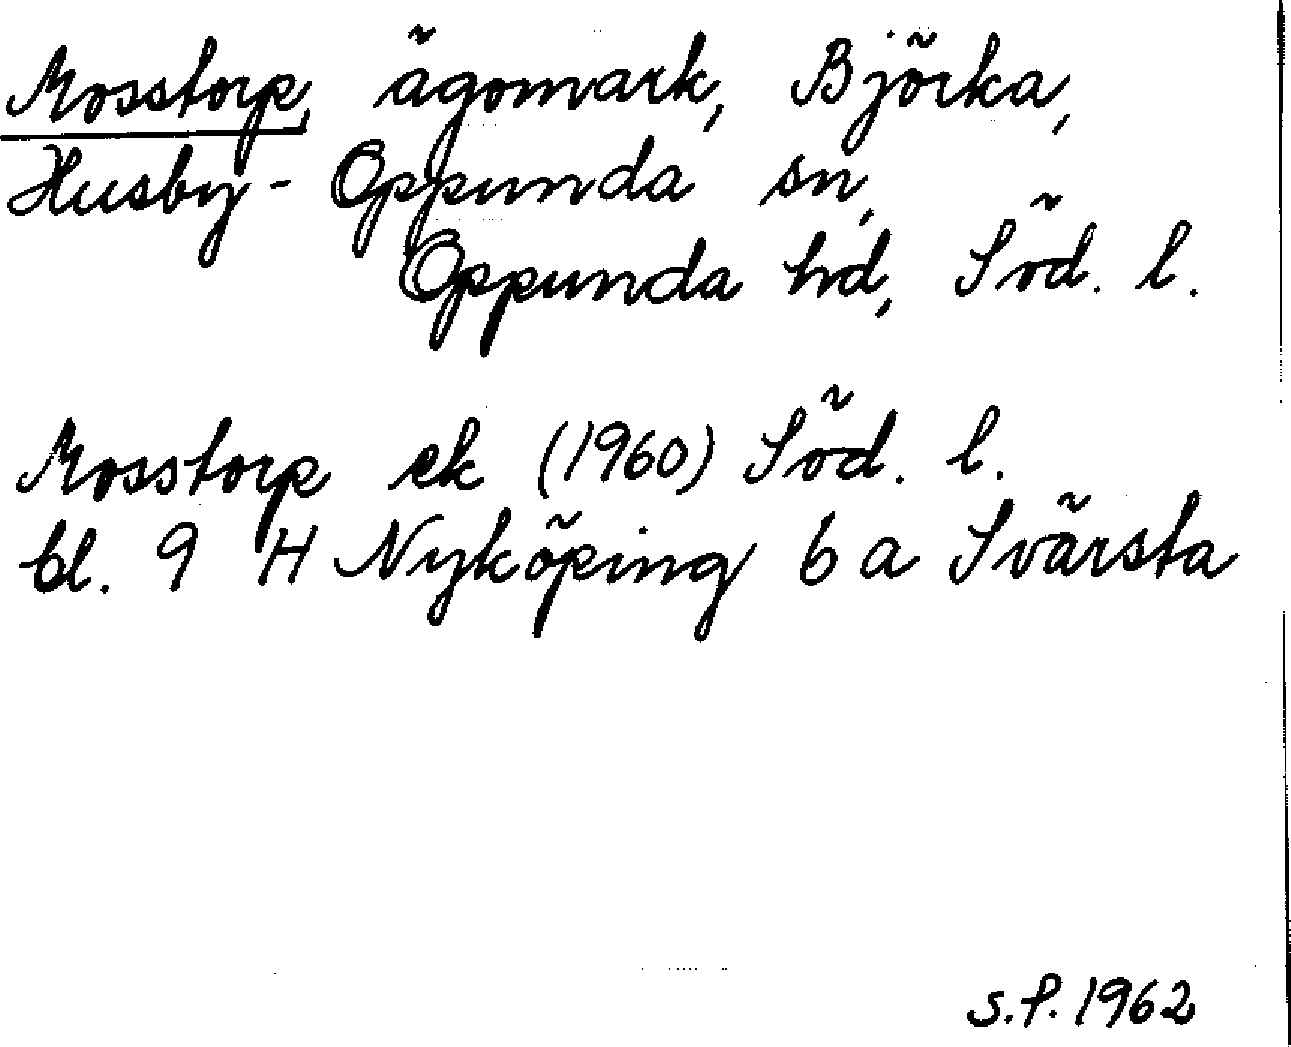 Mosstorp, ägomark, Björka,
Husby-Oppunda sn,
Oppunda hd, Söd. l.
Mosstorp ek (1960) Söd. l.
bl. 9 H Nyköping 6 a Svärsta
S.P. 1962